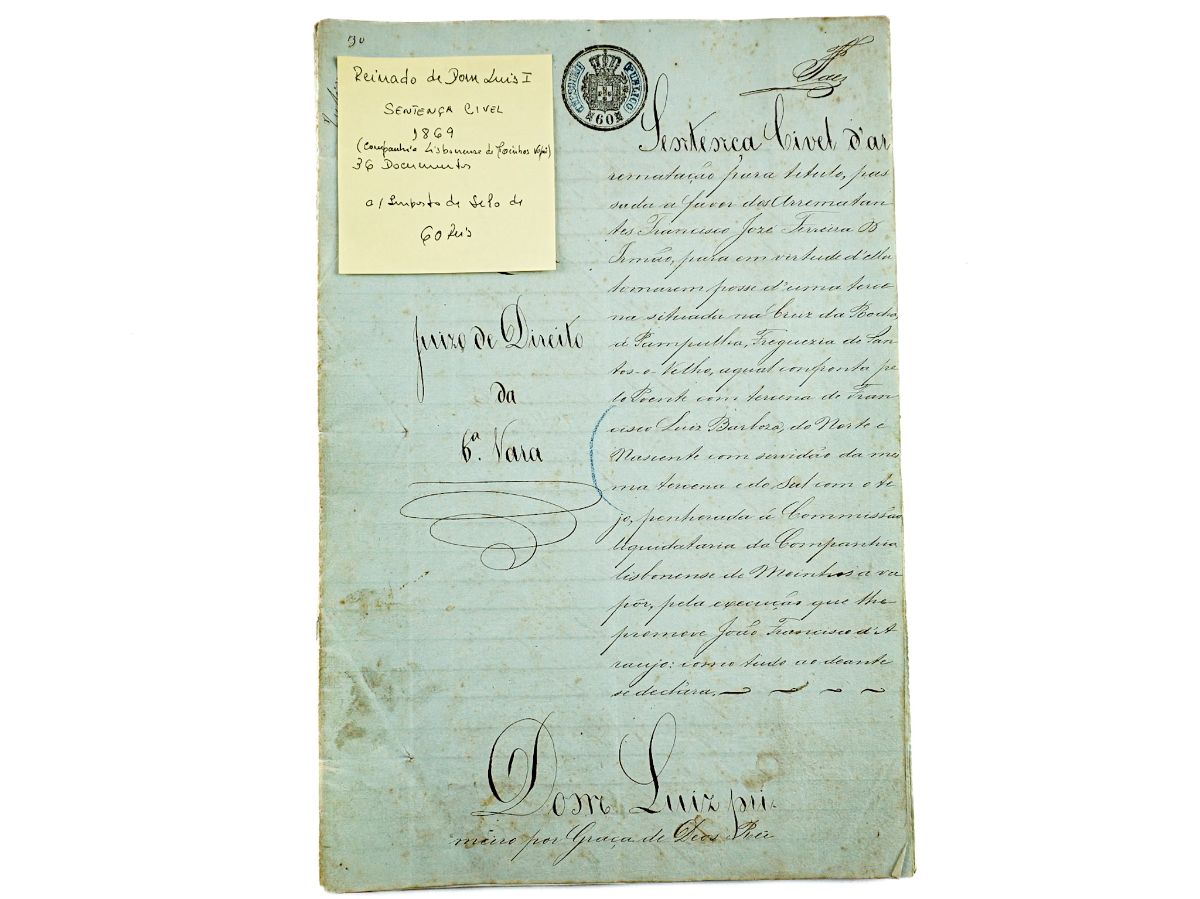 Reinado de Dom Luis I
SENTENÇA CIVEL
1869
(Companhia Lisbonense de Moinhos Vapor)
36 Documentos
a/ Imposto de Selo de
60 Reis
THESOURO PUBLICO
60
Sentença Civel d'ar
rematação para titulo, pas
sada a favor dos Arrematan
tes Francisco José Ferreira &
Irmão, para em virtude d'ella
tomarem posse d'uma terce
na situada na Cruz da Rocha,
á Pampulha, Freguezia de San
tos-o-Velho, a qual confronta pe
lo Poente com tercena de Fran
cisco Luiz Barboza, do Norte e
Nascente com servidão da mes
ma tercena e do Sul com o te
jo, penhorada á Commissão
liquidataria da Companhia
lisbonense de Moinhos a va
pôr, pela execução que lhe
promove João Francisco d'A
raujo: como tudo ao deante
se declára.
Juizo de Direito
da
6ª. Vara
Dom Luiz pri
meiro por Graça de Deos Rei